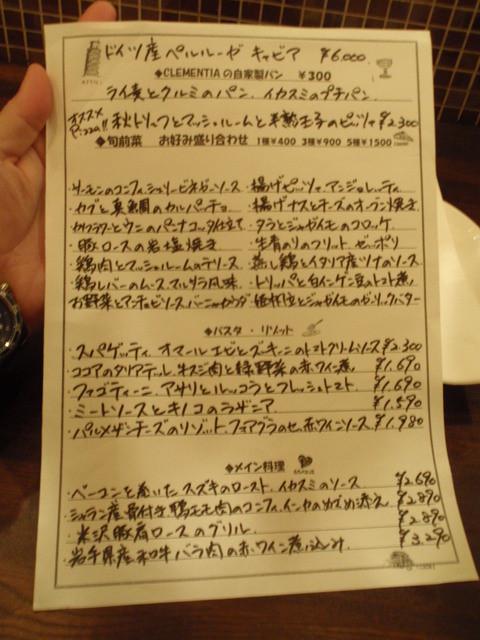 ドイツ産ペルルーガ キャビア ¥6.000
◆CLEMENTIAの自家製パン ¥300
ライ麦とクルミのパン、イカスミのプチパン
オススメ Pizza!! 秋トリュフとマッシュルームと半熟玉子のピッツァ ¥2.300
◆旬前菜 お好み盛り合わせ 1種¥400 3種¥900 5種¥1500
・サーモンのコンフィ シェリービネガーソース ・揚げピッツァ アンジョレッティ
・カブと真鯛のカルパッチョ ・揚げナスとチーズのオーブン焼き
・カリフラワーとウニのパンナコッタ仕立て ・タラとジャガイモのコロッケ
・豚ロースの岩塩焼き ・生青のりのフリット ゼッポリ
・鶏肉とマッシュルームのテリーヌ ・蒸し鶏とイタリア産ツナのソース
・鶏レバーのムース マルサラ風味 ・トリッパと白インゲン豆のトマト煮
・お野菜とアンチョビソース バーニャカウダ ・姫竹豆とジャガイモのガーリックバター
◆パスタ ・ リゾット
・スパゲッティ オマールエビとズッキーニのトマトクリームソース ¥2.300
・ココアのタリアテッレ 牛スジ肉と緑野菜の赤ワイン煮 ¥1.690
・ファゴティーニ アサリとルッコラとフレッシュトマト ¥1.690
・ミートソースとキノコのラザニア ¥1.590
・パルメザンチーズのリゾット、フォアグラのせ、赤ワインソース ¥1.980
◆メイン料理
・ベーコンを巻いたスズキのロースト、イカスミのソース ¥2.690
・シャラン産骨付き鴨モモ肉のコンフィ、インカのめざめ添え ¥2.890
・米沢豚肩ロースのグリル ¥2.890
・岩手県産和牛バラ肉の赤ワイン煮込み ¥3.290